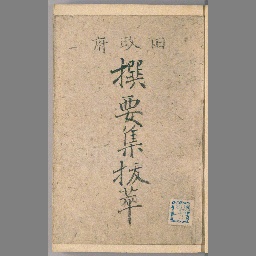 田政府
撰要集抜萃